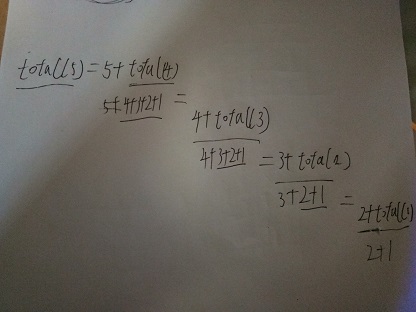 total(5) = 5+ total(4)
5+4+3+2+1 =
4+total(3)
4+3+2+1 = 3+ total(2)
3+2+1 = 2+total(1)
2+1